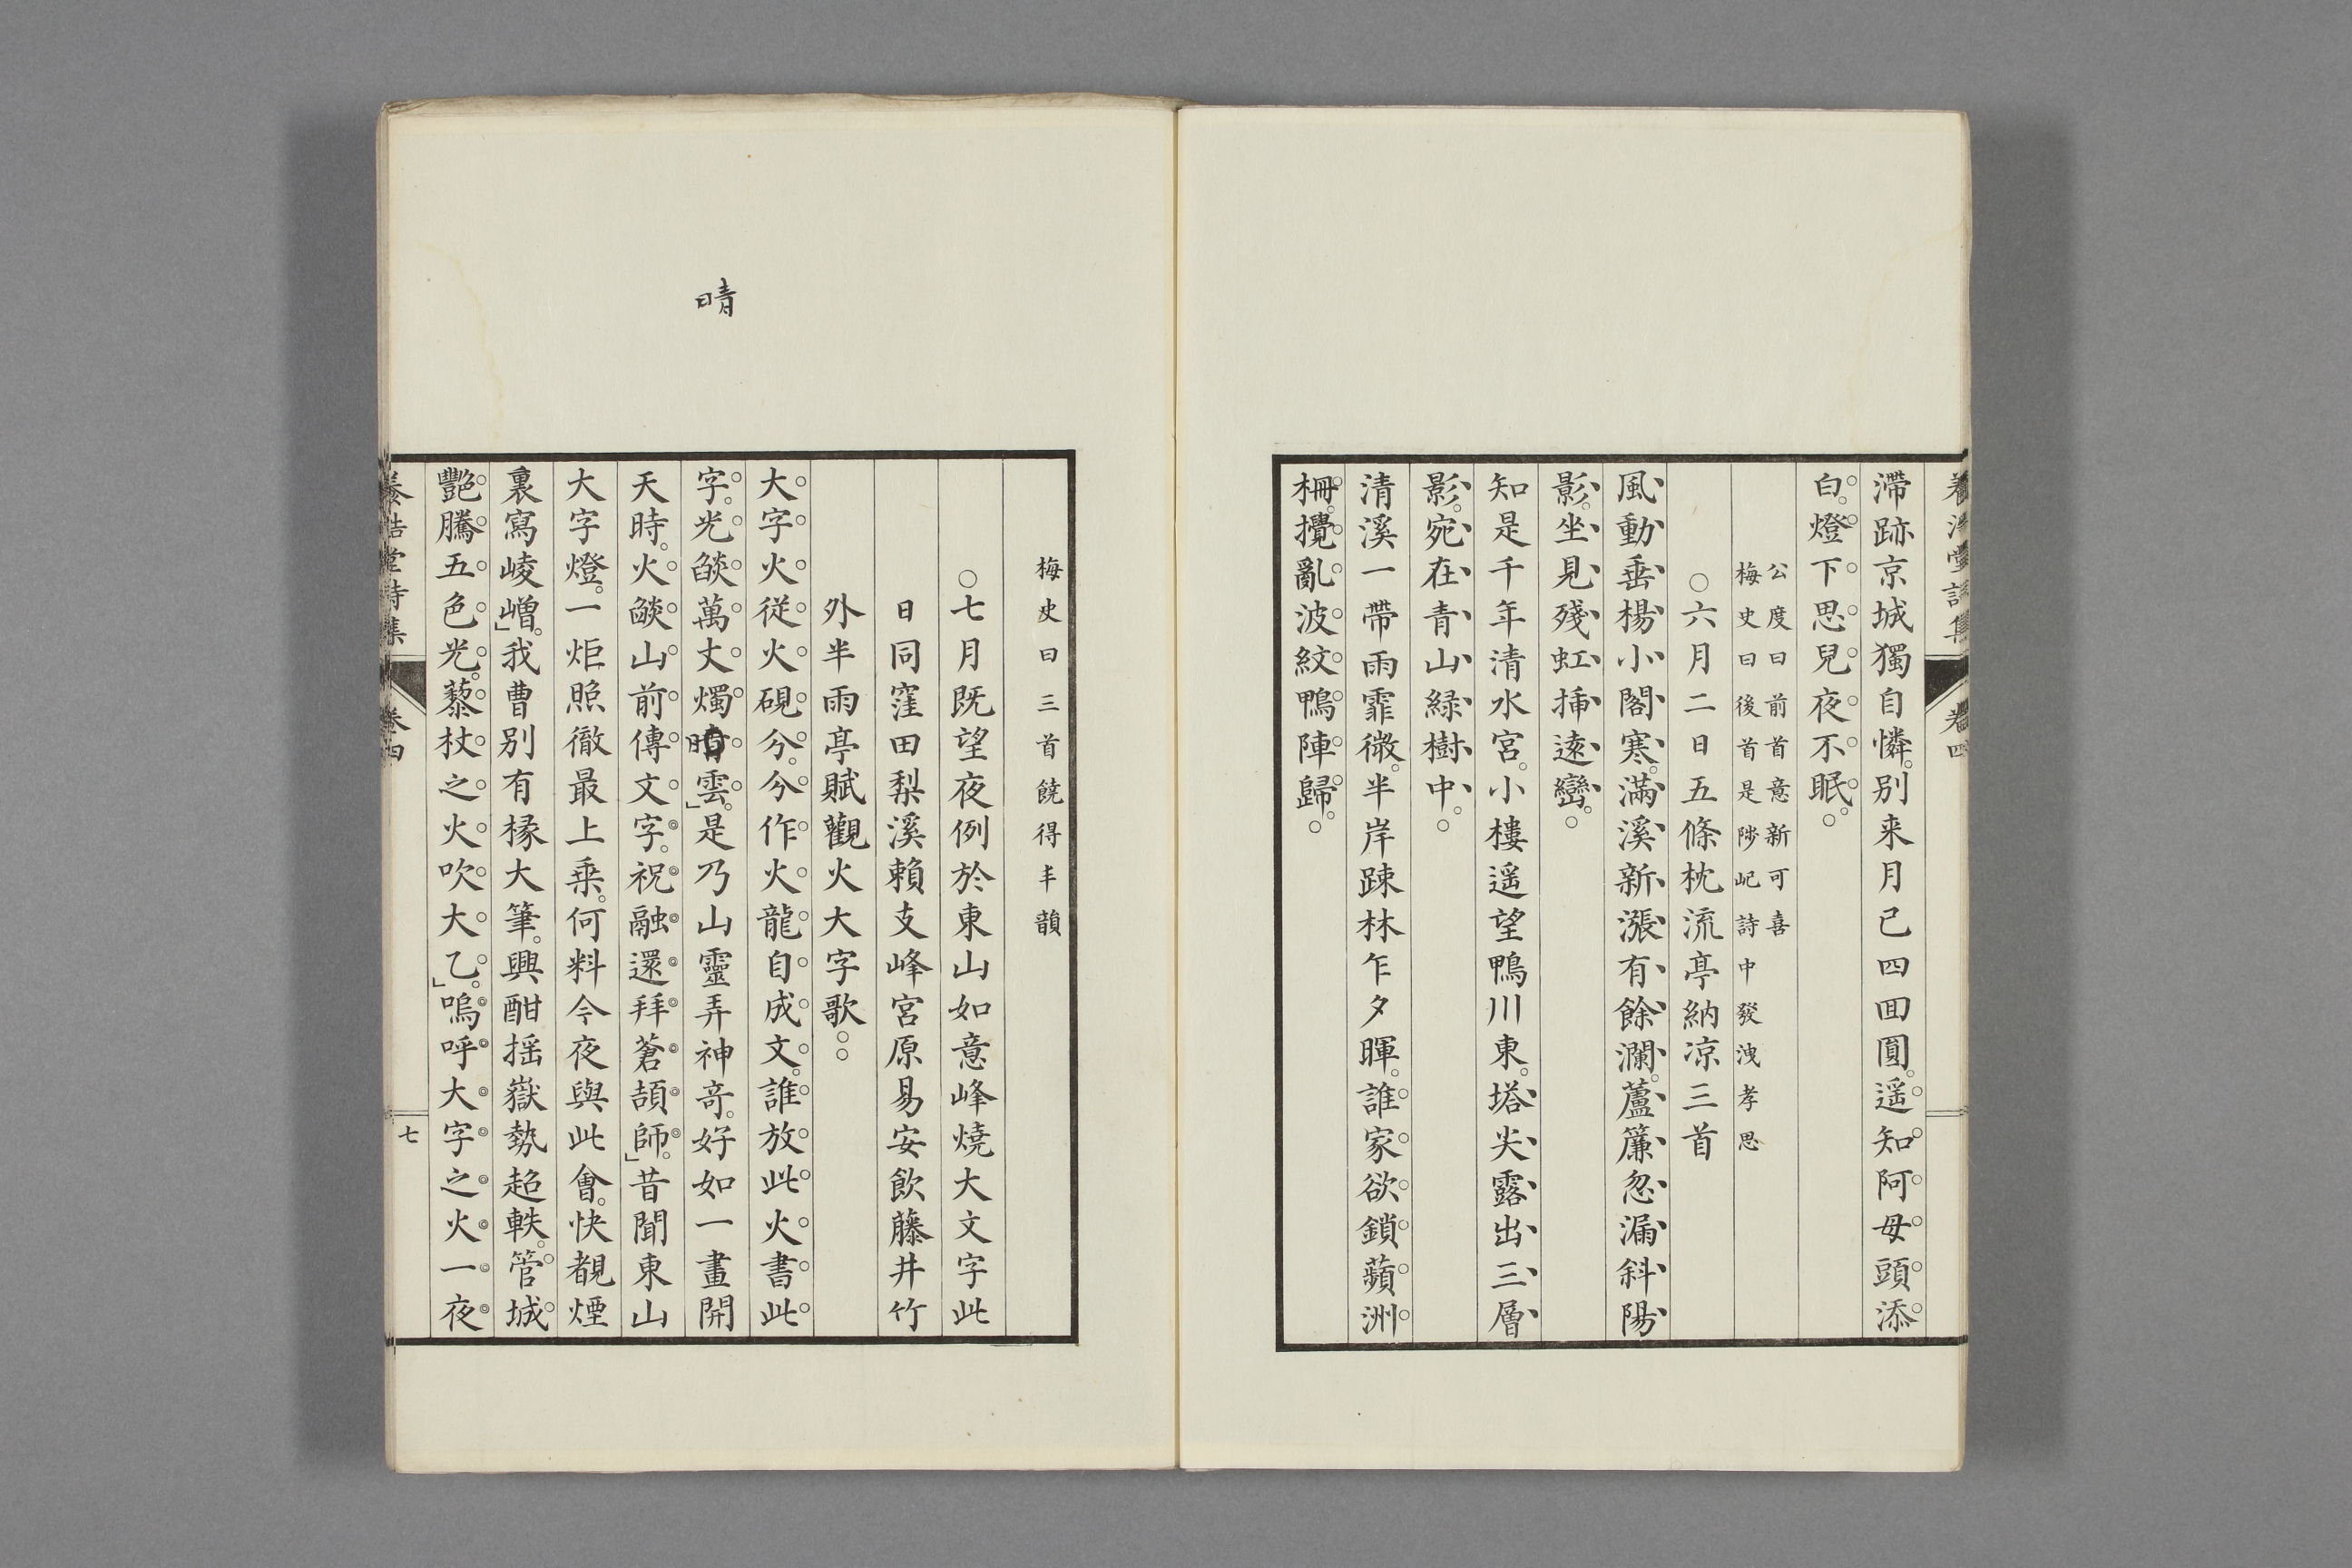 滯跡京城獨自憐。别来月已四囬圓。遥知阿母頭添
白。燈下思兒夜不眠。○
公度曰前首意新可喜
梅史曰後首是陟屺詩中發洩孝思
○六月二日五條枕流亭納凉三首
風動垂楊小閣寒。滿溪新漲有餘瀾。蘆簾忽漏斜陽
影。坐見殘虹挿遠巒。○
知是千年清水宮。小樓遥望鴨川東。塔尖露出三層
影。宛在青山緑樹中。○
清溪一帶雨霏微。半岸踈林乍夕暉。誰家欲鎖蘋洲
柵。攪亂波紋鴨陣歸。○
梅史曰三首饒得丰韻
○七月既望夜例於東山如意峰燒大文字此
日同窪田梨溪賴支峰宮原易安飲藤井竹
外半雨亭賦觀火大字歌○○
大字火從火硯分。今作火龍自成文。誰放此火書此
字。光燄萬丈燭晴雲。」是乃山靈弄神竒。好如一畫開
天時。火燄山前傳文字。祝融還拜蒼頡師。」昔聞東山
大字燈。一炬照徹最上乗。何料今夜與此會。快覩煙
裏寫崚嶒。」我曹别有椽大筆。興酣揺嶽勢超軼。管城
艷騰五色光。藜杖之火吹大乙。」嗚呼大字之火一夜
卷四
七
晴